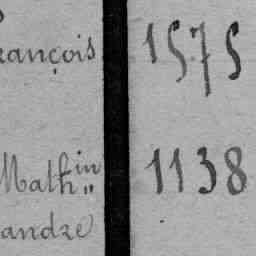 rançois 1575
Math:in 1138
andre